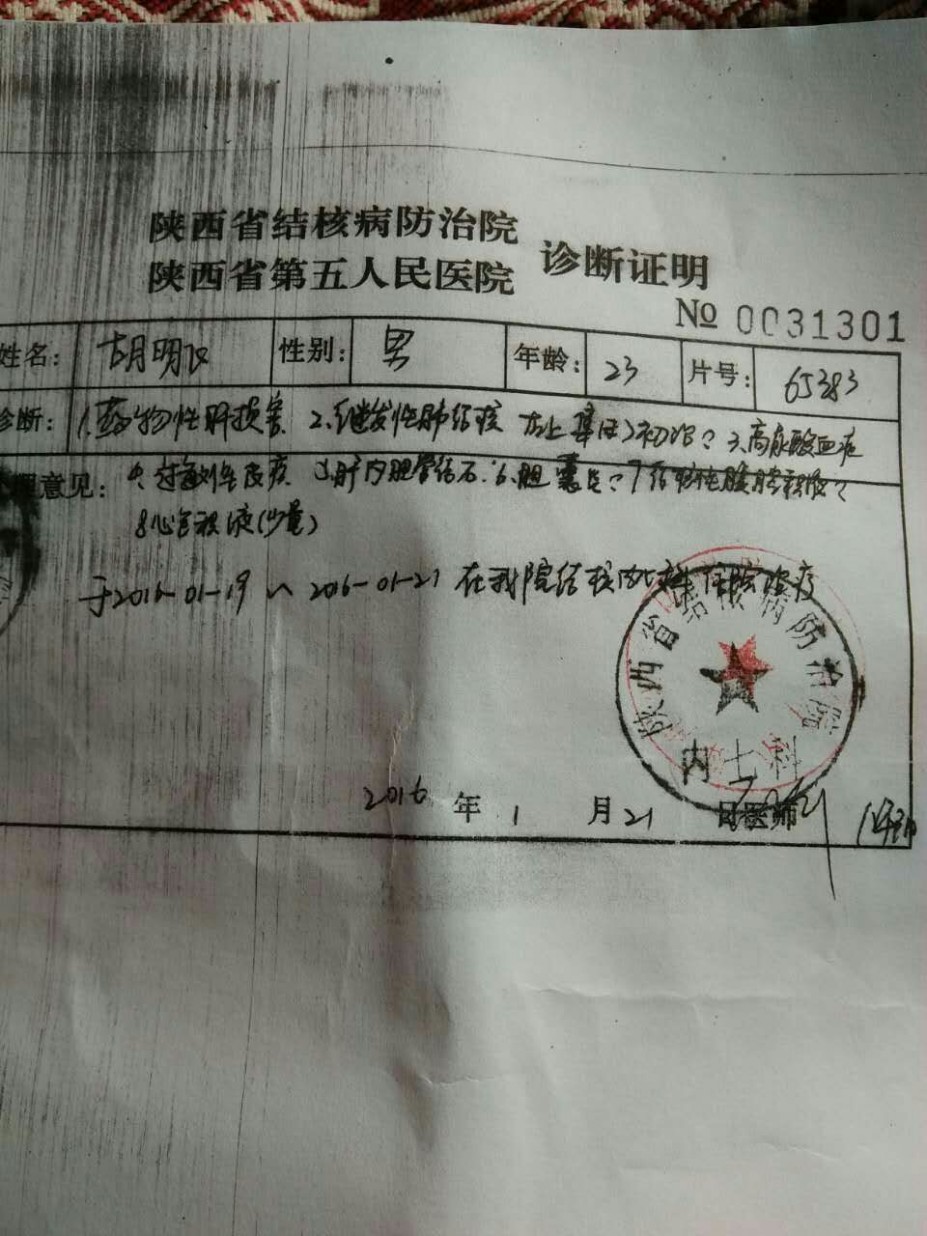 陕西省结核病防治院
陕西省第五人民医院
诊断证明
№ 0031301
姓名: 胡明 性别: 男 年龄: 23 片号: 65383
诊断: 1.药物性肝损害 2.继发性肺结核 左上 初治? 3.高尿酸血症
理意见: 4.过敏性皮疹 5.肝内胆管结石 6.胆囊炎? 7.结核性腹腔积液?
8心包积液(少量)
于2016-01-19~2016-01-21 在我院结核内七科住院治疗
陕西省结核病防治院
内七科
2016 年 1 月 21 日医师